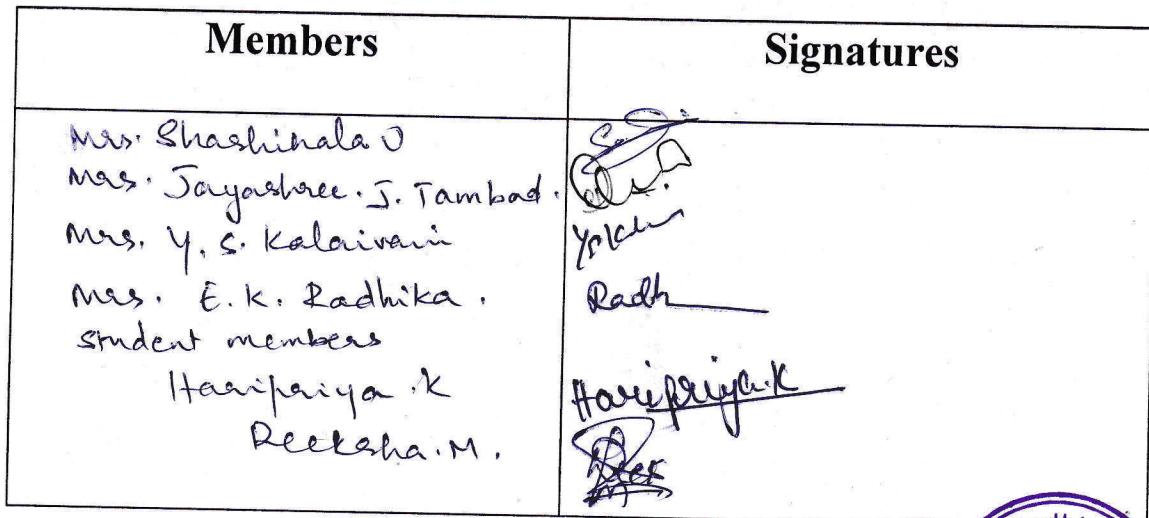 Members Signatures
Mrs. Shashikala U
Mrs. Jayashree. J. Tambad.
Mrs. Y. S. Kalaivani
Mrs. E. K. Radhika. Radh
student members
Haripriya .K Haripriya.K
Deeksha.M.